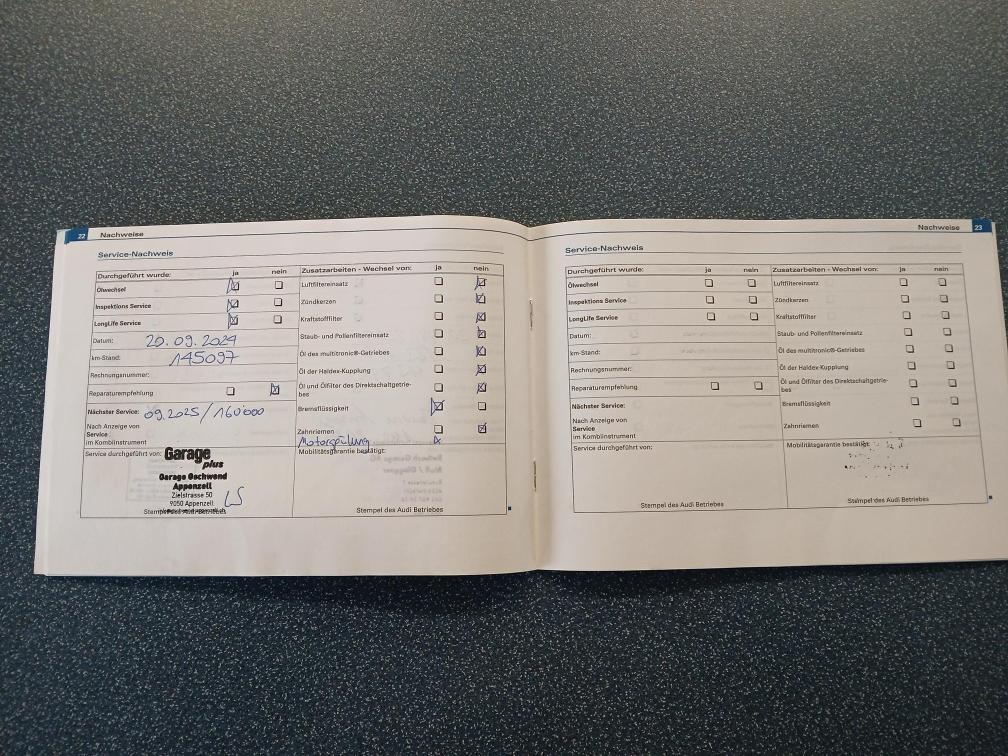 22 Nachweise
Service-Nachweis
Durchgeführt wurde: ja nein
Ölwechsel
Inspektions Service
LongLife Service
Datum: 20.09.2024
km-Stand: 145097
Rechnungsnummer:
Reparaturempfehlung
Nächster Service: 09.2025/160'000
Nach Anzeige von
Service
im Kombiinstrument
Service durchgeführt von:
Garage
plus
Garage Gschwend
Appenzell
Zielstrasse 50
9050 Appenzell
LS
Stempel des Audi Betriebes
Zusatzarbeiten - Wechsel von: ja nein
Luftfiltereinsatz
Zündkerzen
Kraftstofffilter
Staub- und Pollenfiltereinsatz
Öl des multitronic®-Getriebes
Öl der Haldex-Kupplung
Öl und Ölfilter des Direktschaltgetrie-
bes
Bremsflüssigkeit
Zahnriemen
Motorspülung x
Mobilitätsgarantie bestätigt:
Stempel des Audi Betriebes
Nachweise 23
Service-Nachweis
Durchgeführt wurde: ja nein
Ölwechsel
Inspektions Service
LongLife Service
Datum:
km-Stand:
Rechnungsnummer:
Reparaturempfehlung
Nächster Service:
Nach Anzeige von
Service
im Kombiinstrument
Service durchgeführt von:
Stempel des Audi Betriebes
Zusatzarbeiten - Wechsel von: ja nein
Luftfiltereinsatz
Zündkerzen
Kraftstofffilter
Staub- und Pollenfiltereinsatz
Öl des multitronic®-Getriebes
Öl der Haldex-Kupplung
Öl und Ölfilter des Direktschaltgetrie-
bes
Bremsflüssigkeit
Zahnriemen
Mobilitätsgarantie bestätigt:
Stempel des Audi Betriebes